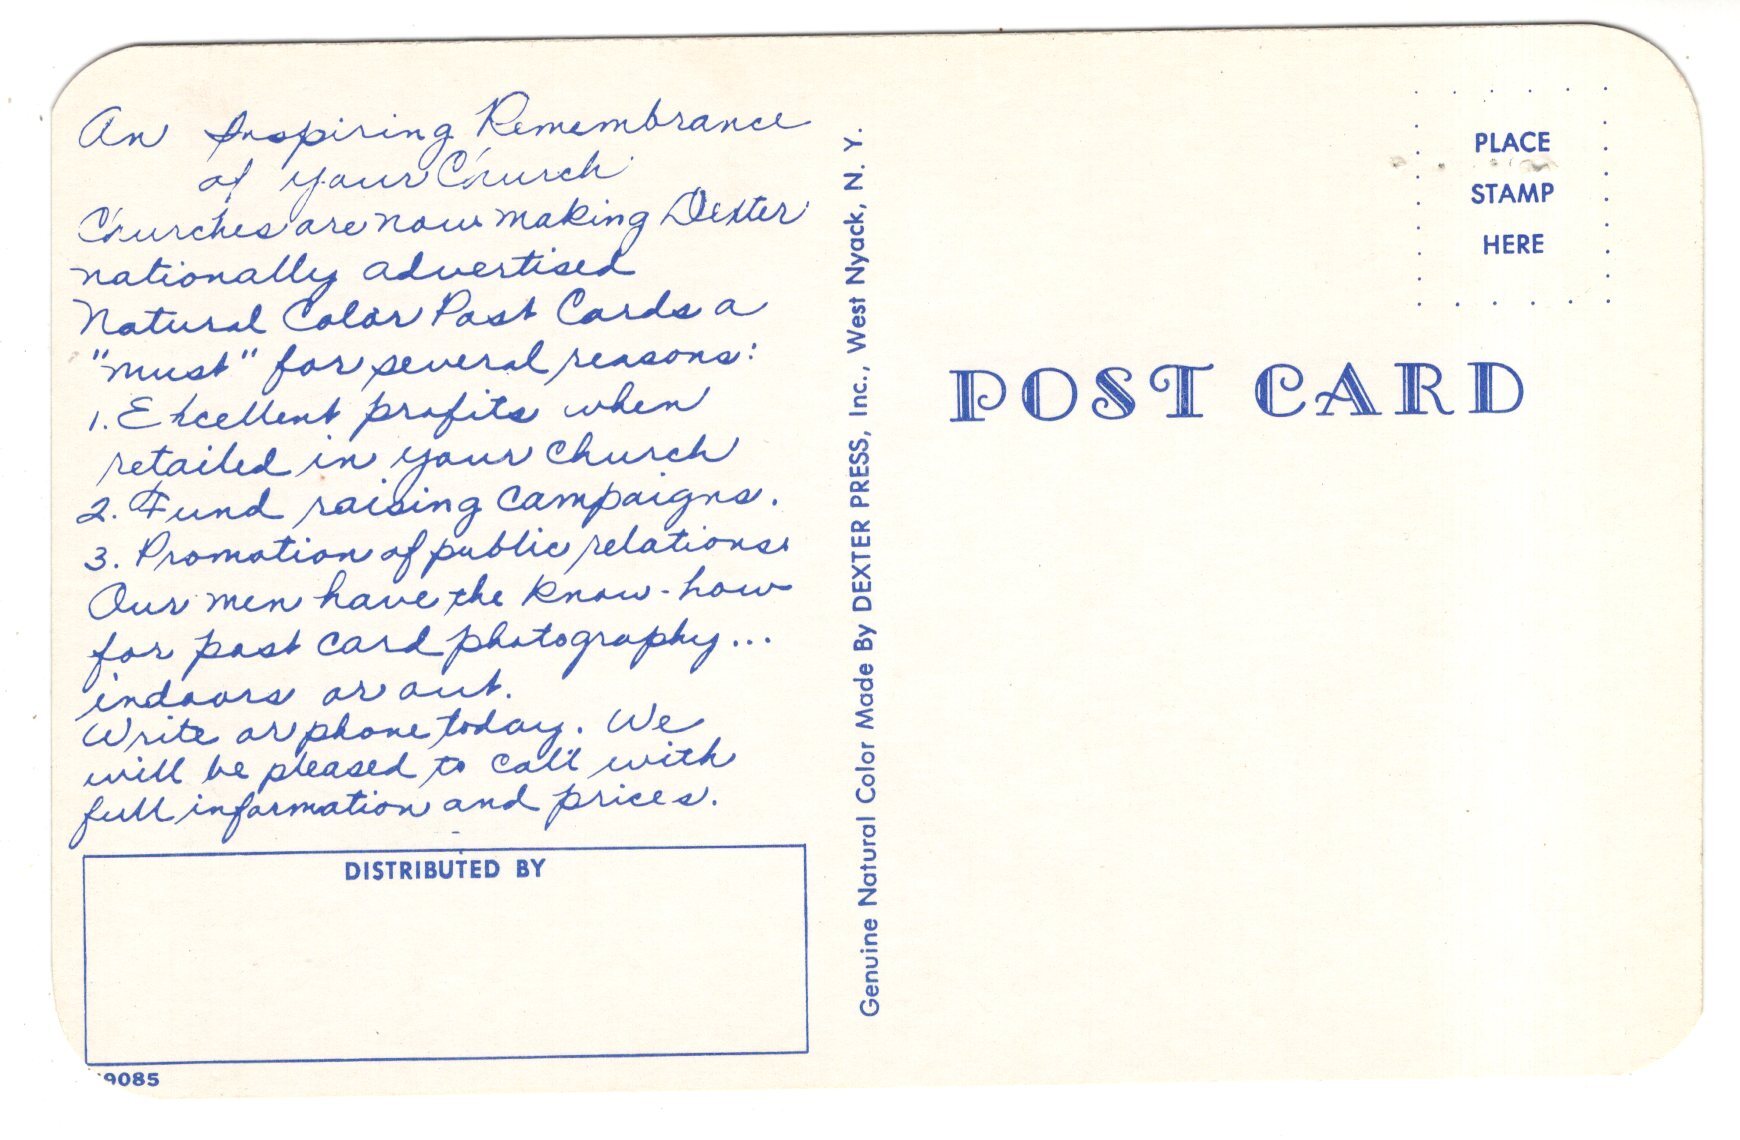 An Inspiring Remembrance
of your Church
Churches are now making Dexter
nationally advertised
Natural Color Post Cards a
"must" for several reasons:
1. Excellent profits when
retailed in your Church
2. Fund raising campaigns.
3. Promotion of public relations.
Our men have the know-how
for post card photography...
indoors or out.
Write or phone today. We
will be pleased to call with
full information and prices.
DISTRIBUTED BY
9085
Genuine Natural Color Made By DEXTER PRESS, Inc., West Nyack, N. Y.
PLACE
STAMP
HERE
POST CARD